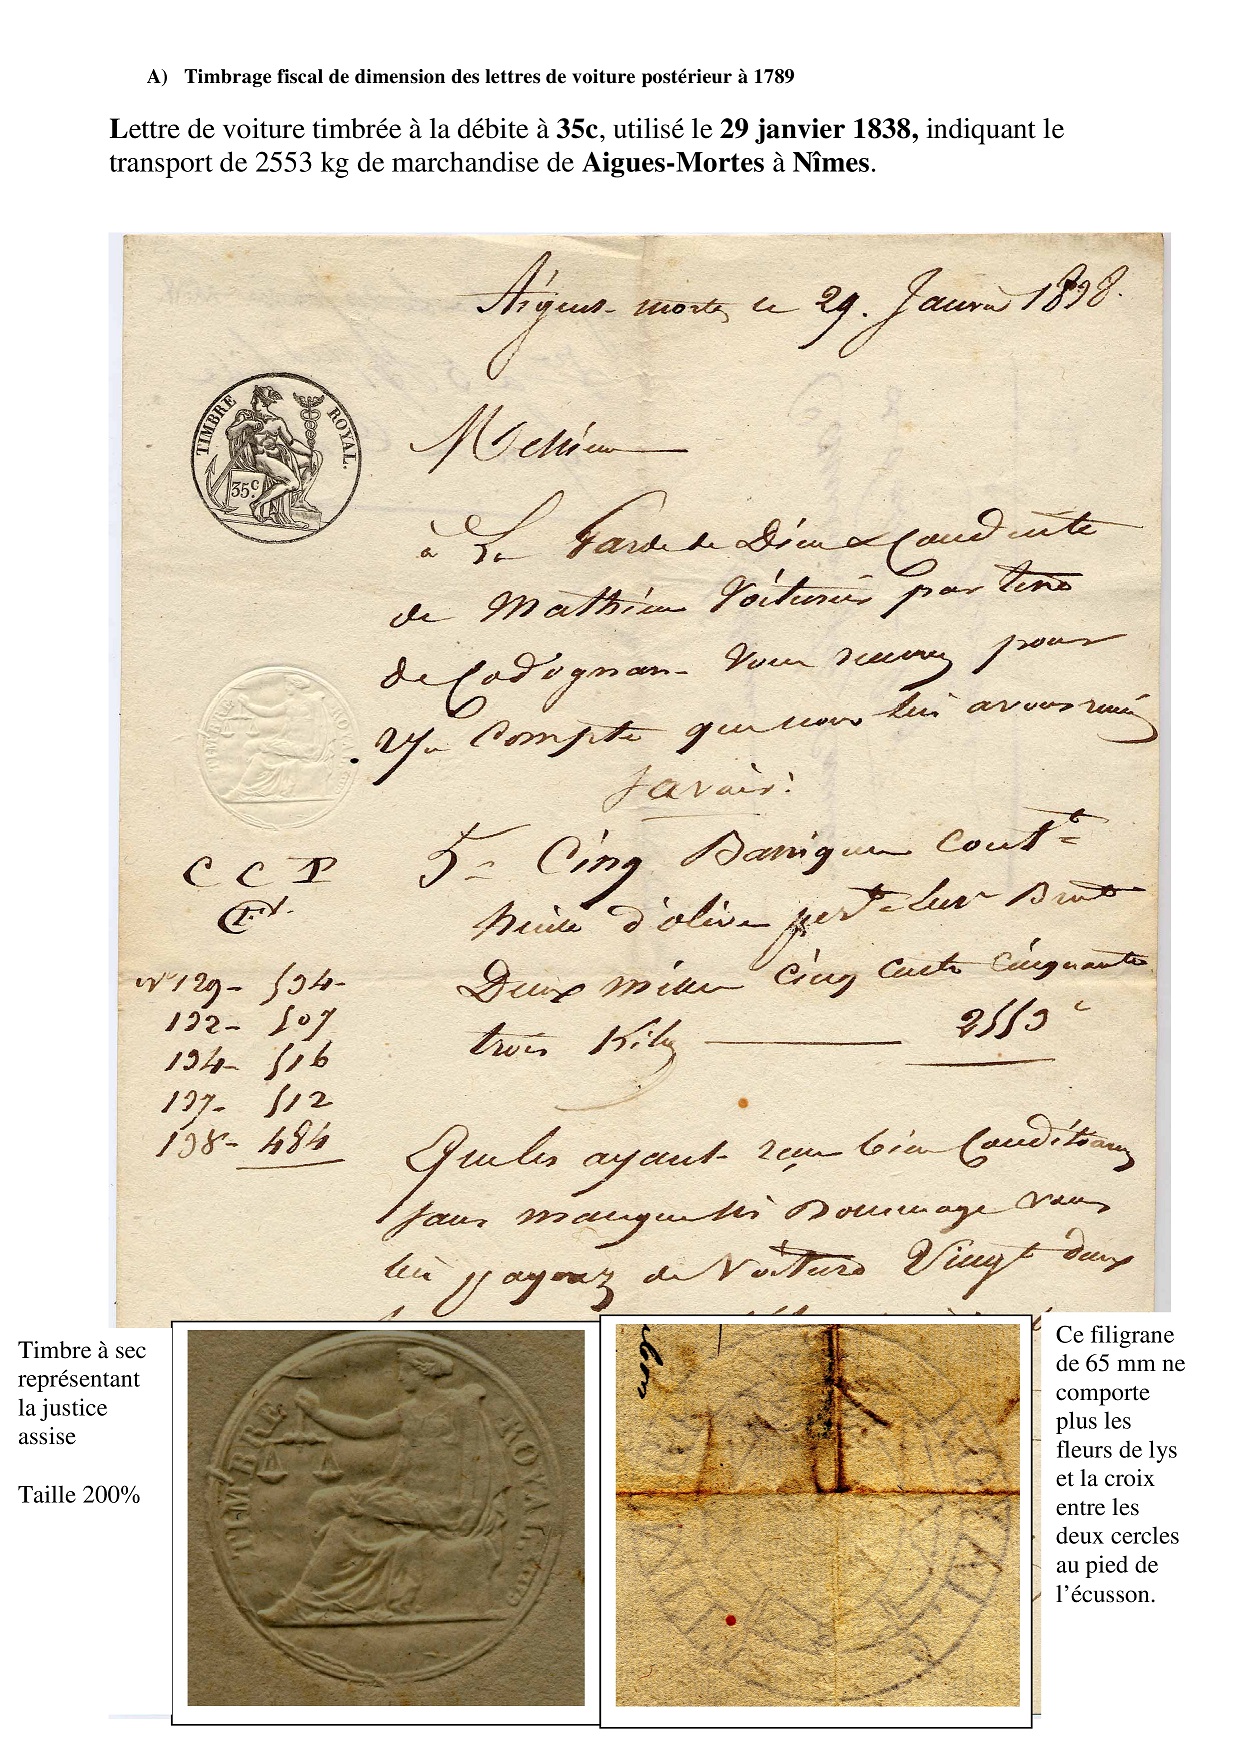 A) Timbrage fiscal de dimension des lettres de voiture postérieur à 1789
Lettre de voiture timbrée à la débite à 35c, utilisé le 29 janvier 1838, indiquant le
transport de 2553 kg de marchandise de Aigues-Mortes à Nîmes.
Aigues-mortes le 29. Janvier 1838.
TIMBRE ROYAL.
35c
Messieurs
à La Garde de Dieu & Conduite
de Mathieu Voiturier par terre
de Codognan Vous recevrez pour
Compte que nous lui avons remis
Savoir:
TIMBRE ROYAL
5 Cinq Barriques Cont.te
huile d'olive Brut
Deux mille cinq cents cinquante
trois Kilog 2553
C C P
N° 129- 534-
132- 507
134- 516
137- 512
138- 484
Quelles ayant reçu bien Conditionnées
sans manque ni Dommage vous
lui payerez de Voiture Vingt deux
Timbre à sec
représentant
la justice
assise
Taille 200%
TIMBRE ROYAL
Ce filigrane
de 65 mm ne
comporte
plus les
fleurs de lys
et la croix
entre les
deux cercles
au pied de
l'écusson.